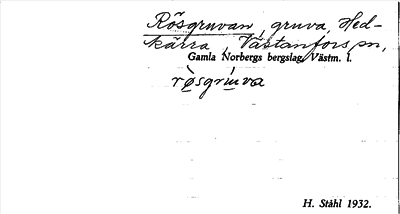 Rösgruvan gruva, Hed-
kärra, Västanfors sn,
Gamla Norbergs bergslag, Västm. l.
rø̀sgrúva
H. Ståhl 1932.